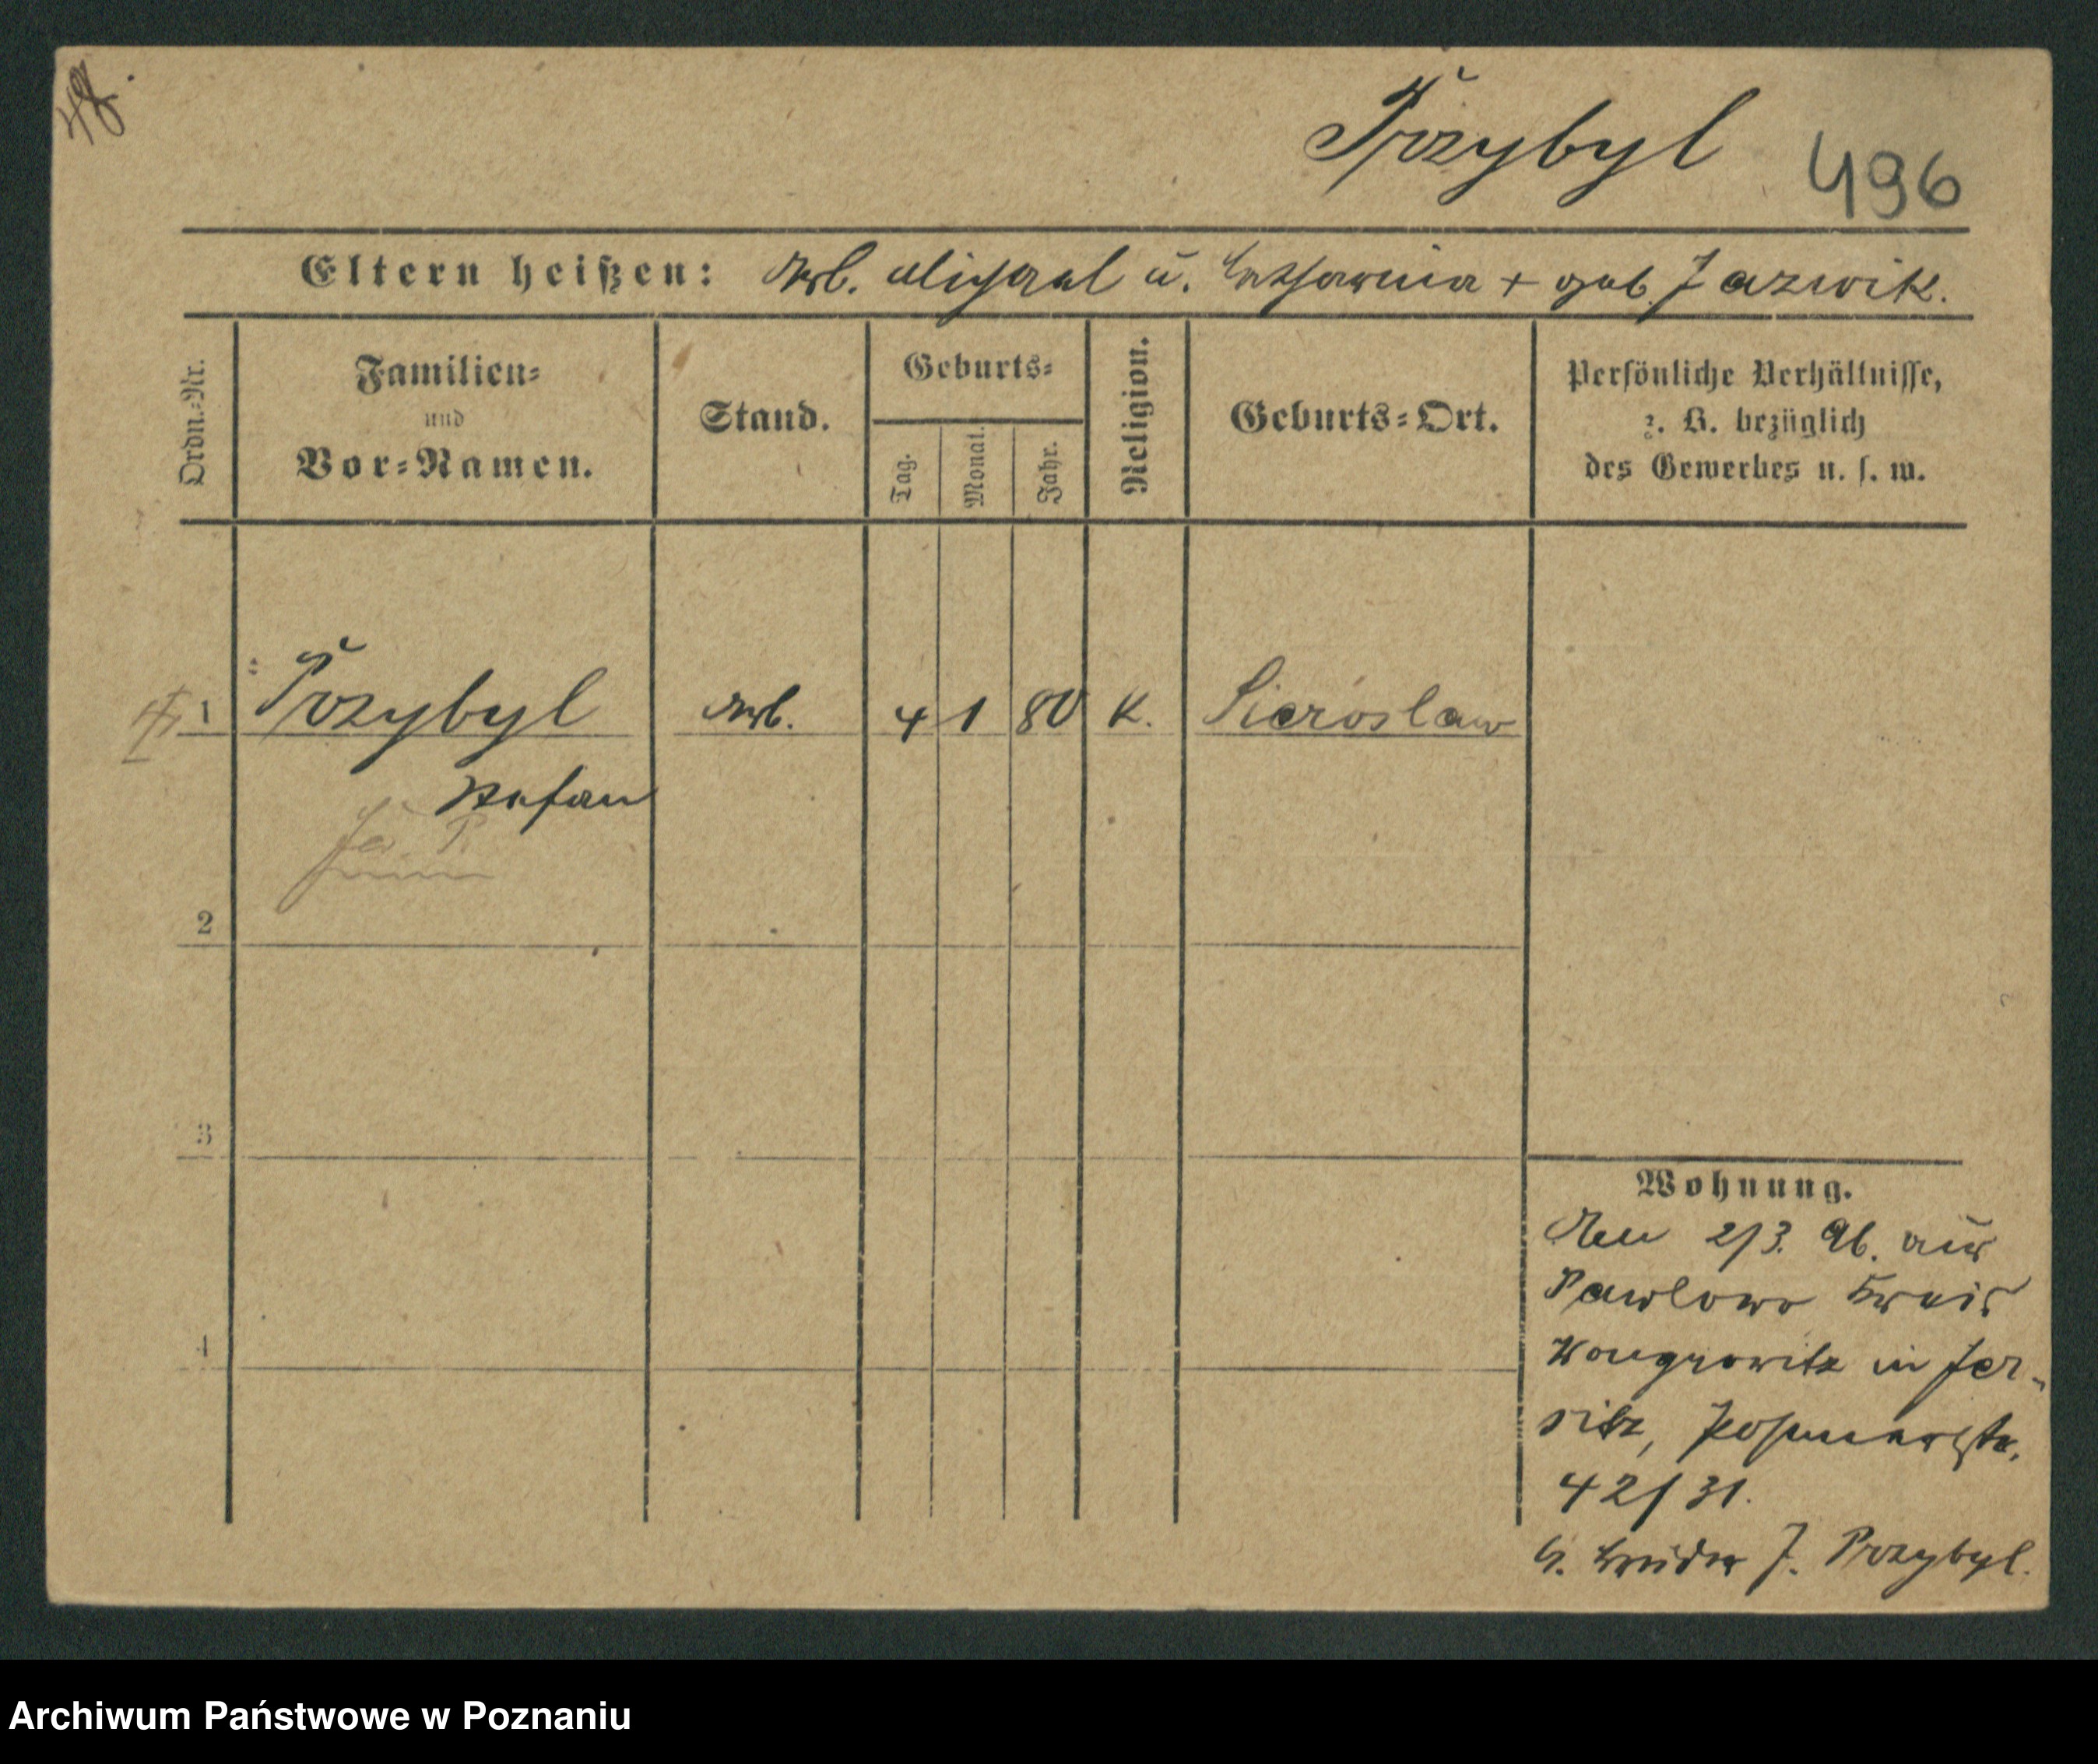 48.
Przybyl 496
Eltern heißen: Arb. Michael u. Catharina + geb. Jazwik.
Ordn.-Nr.
Familien-
und
Vor-Namen.
Stand.
Geburts-
Tag.
Monat.
Jahr.
Religion.
Geburts-Ort.
Persönliche Verhältnisse,
z. B. bezüglich
des Gewerbes u. s. w.
1 Przybyl Arb. 4 1 80 K. Sieroslaw
Stefan
2
3
4
Wohnung.
Den 2/3. 96. aus
Pawlowo Kreis
Wongrowitz in Jer-
sitz, Posenerstr.
42/31.
b. Bruder J. Przybyl.
Archiwum Państwowe w Poznaniu